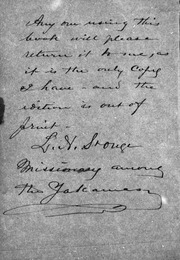 Any one using this
book will please
return it to me, as
it is the only Copy
I have - and the
edition is out of
print.
L. H. Stone
Missionary among
the Yakamas